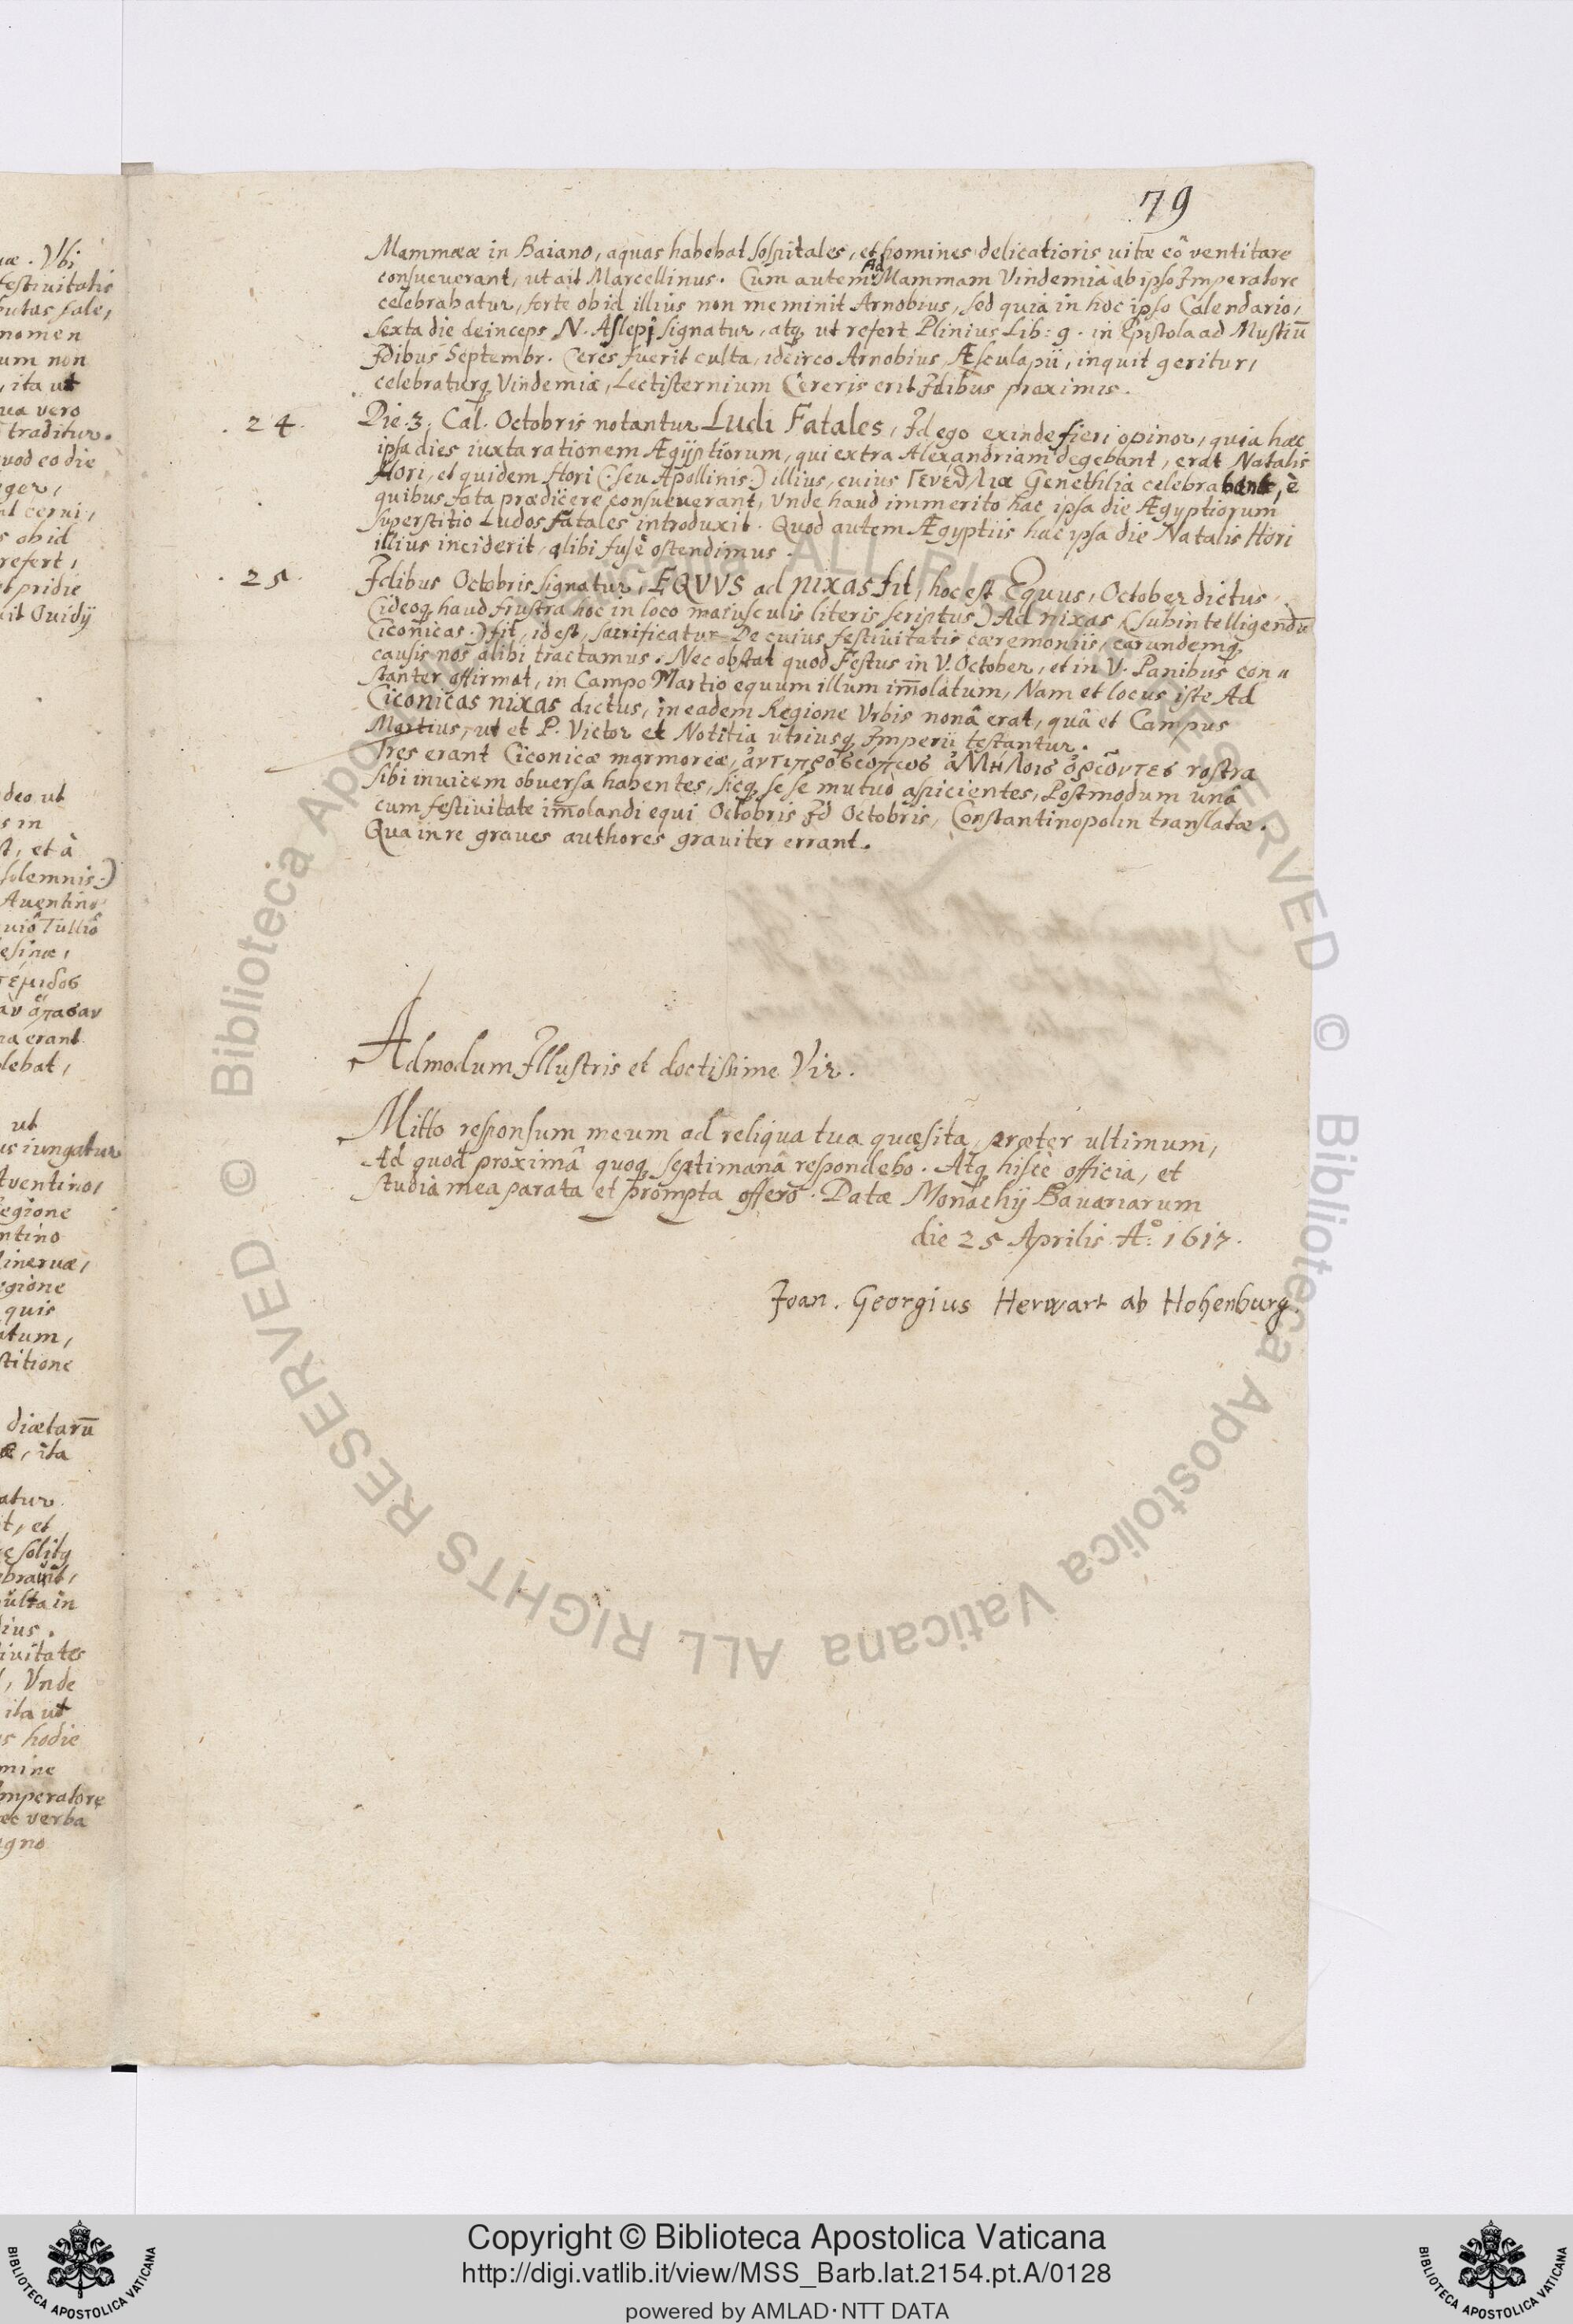 79
Mammææ in Baiano, aquas habebat sospitales, et homines delicatioris uitæ eô ventitare
consueuerant, ut ait Marcellinus. Cum autem Ad Mammam Vindemia ab ipso Imperatore
celebrabatur, forte ob id illius non meminit Arnobius, sed quia in hoc ipso Calendario,
sexta die deinceps N. Aslepi signatur, atq; ut refert Plinius Lib: 9. in Epistola ad Mustiū
Idibus Septembr. Ceres fuerit culta, idcirco Arnobius Æsculapii, inquit geritur,
celebraturq; Vindemia, Lectisternium Cereris erit Idibus proximis.
24. Die 3. Cal. Octobris notantur Ludi Fatales, Id ego exinde fieri opinor, quia hæc
ipsa dies iuxta rationem Ægijptiorum, qui extra Alexandriam degebant, erat Natalis
Hori, et quidem Hori (: seu Apollinis:) illius, cuius Γενέθλια Genethlia celebrabant, è
quibus fata prædicere consueuerant, Vnde haud immerito hac ipsa die Ægyptiorum
superstitio Ludos fatales introduxit. Quod autem Ægyptiis hac ipsa die Natalis Hori
illius inciderit, alibi fusè ostendimus.
25. Idibus Octobris signatur, EQVVS ad nixas fit, hoc est Equus, October dictus
(ideoq; haud frustra hoc in loco maiusculis literis scriptus) Ad nixas, (subintelligendū
Ciconicas:) fit, id est, sacrificatur. De cuius festiuitatis cæremoniis, earundemq;
causis nos alibi tractamus. Nec obstat quod Festus in V. October, et in V. Panibus con=
stanter affirmat, in Campo Martio equum illum im̄olatum, Nam et locus iste Ad
Ciconicas nixas dictus, in eadem Regione Vrbis nonâ erat, quâ et Campus
Martius, ut et P. Victor et Notitia utriusq; Imperii testantur.
Tres erant Ciconicæ marmoreæ, rostra
sibi inuicem obuersa habentes, sicq; sese mutuò aspicientes, Postmodum unâ
cum festiuitate im̄olandi equi Octobris Id Octobris, Constantinopolin translatæ.
Qua in re graues authores grauiter errant.
Admodum Illustris et doctissime Vir.
Mitto responsum meum ad reliqua tua quæsita, præter ultimum,
Ad quod proximâ quoq; septimanâ respondebo. Atq; hisce officia, et
studia mea parata et prompta offero. Datæ Monachij Bauariarum
die 25 Aprilis A.º 1617.
Joan. Georgius Herwart ab Hohenburg.
Copyright © Biblioteca Apostolica Vaticana
http://digi.vatlib.it/view/MSS_Barb.lat.2154.pt.A/0128
powered by AMLAD·NTT DATA
BIBLIOTECA APOSTOLICA VATICANA
BIBLIOTECA APOSTOLICA VATICANA
© Biblioteca Apostolica Vaticana ALL RIGHTS RESERVED
© Biblioteca Apostolica Vaticana ALL RIGHTS RESERVED